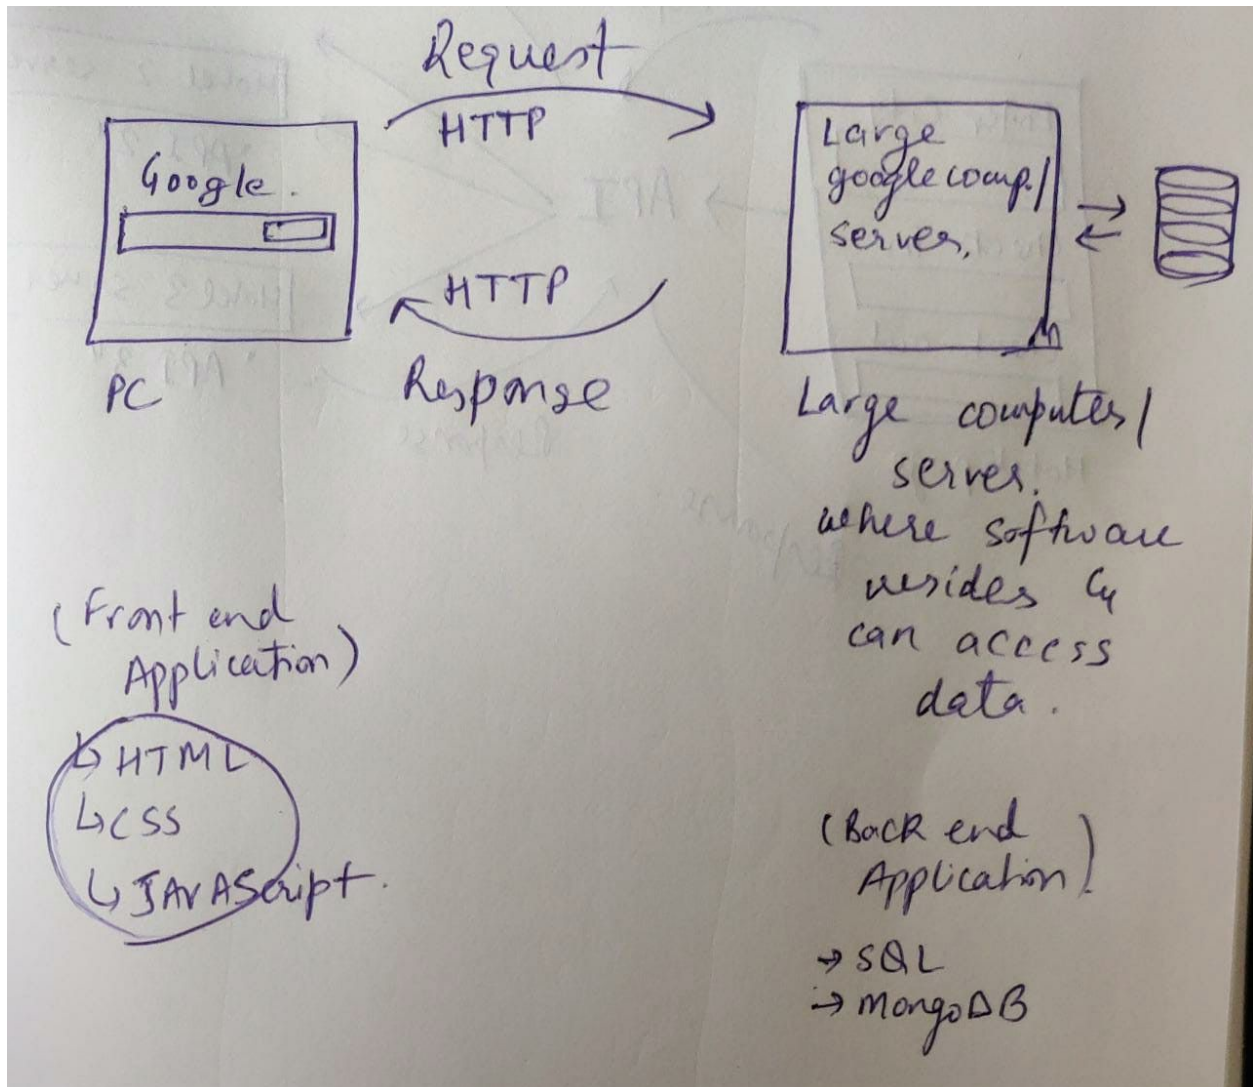 Request
HTTP
Google.
Large
google comp./
server,
HTTP
Response
PC
Large computer/
server.
where software
resides &
can access
data.
(Front end
Application)
↳ HTML
↳ CSS
↳ JAVAScript.
(Back end
Application)
→ SQL
→ MongoDB